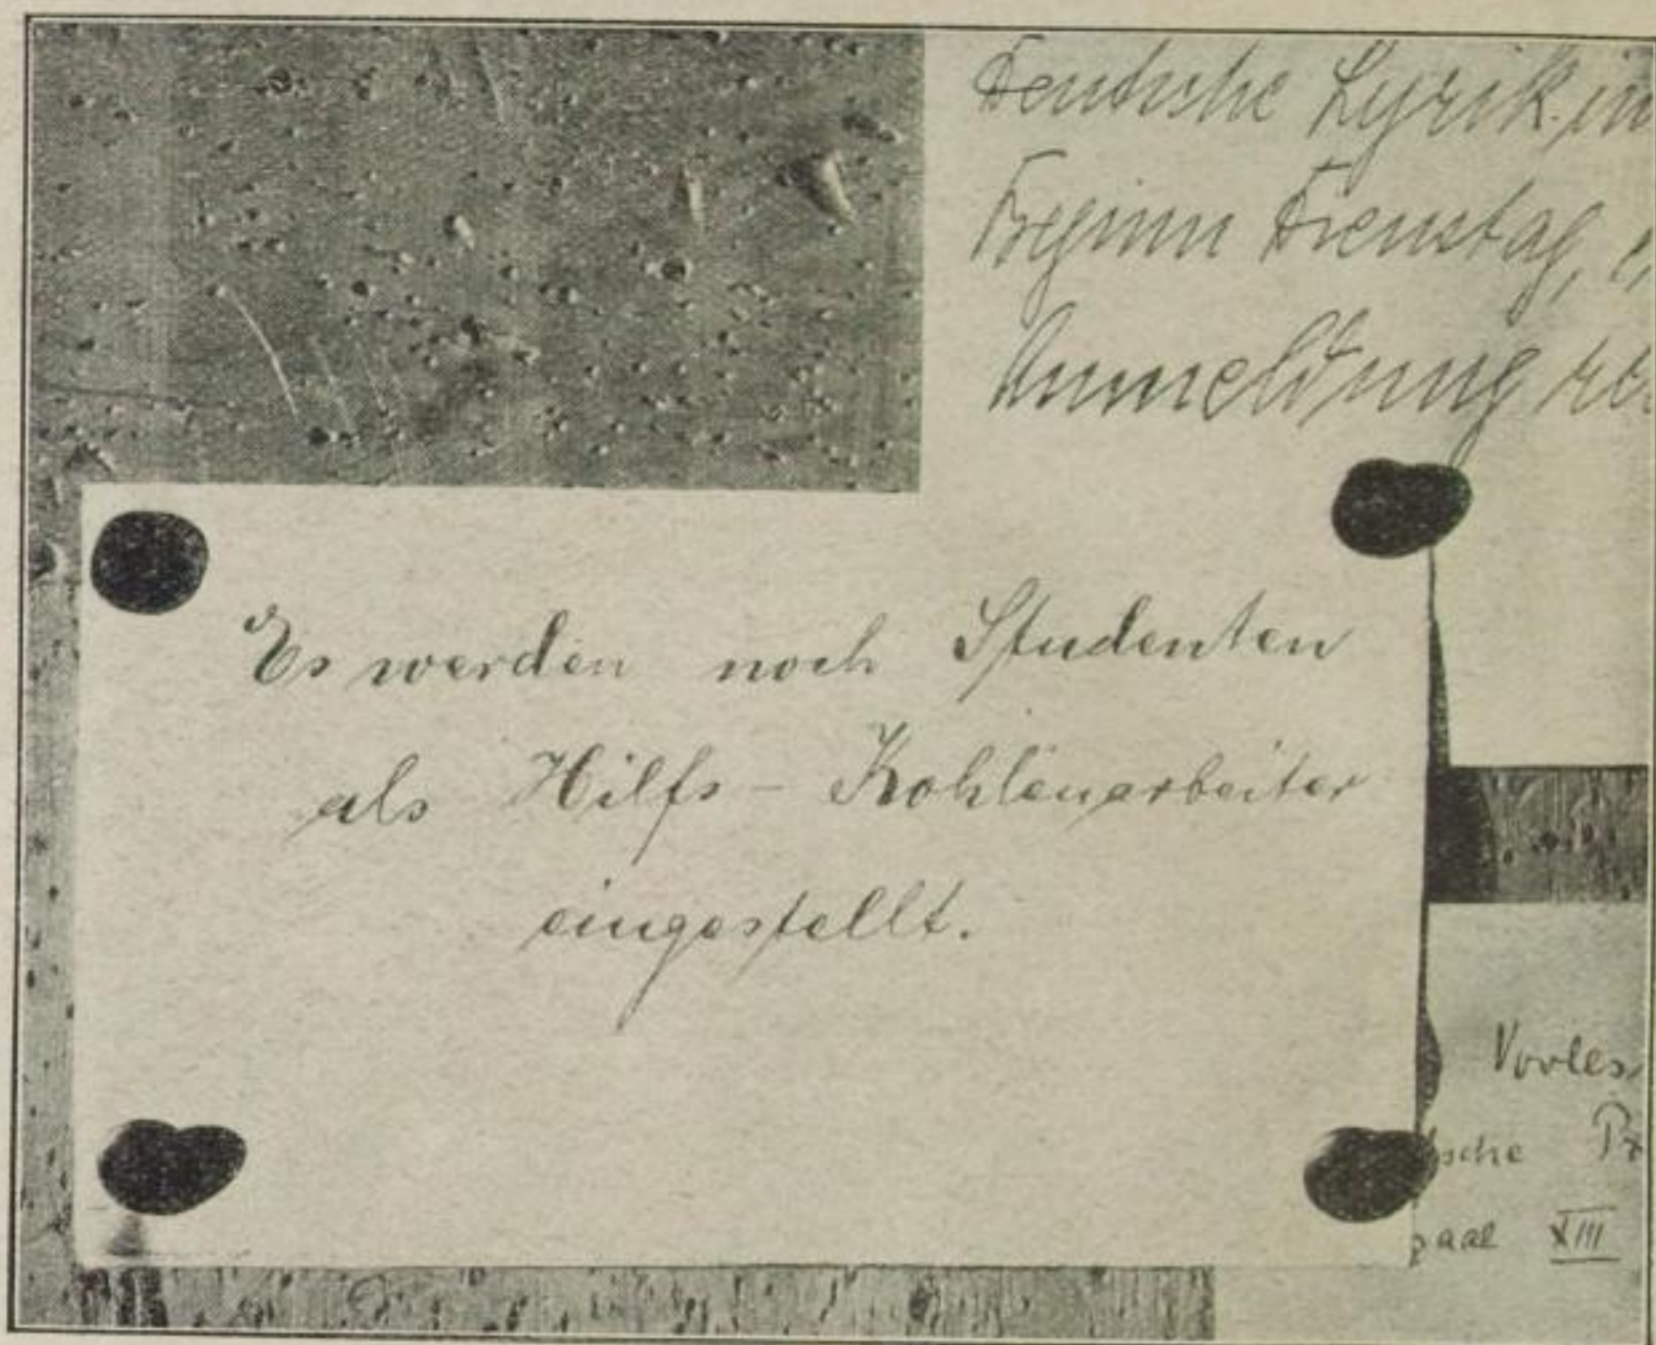 Deutsche Lyrik im
Beginn Dienstag,
Anmeldung
Es werden noch Studenten
als Hilfs - Kohlenarbeiter
eingestellt.
Vorles
sche Pr
saal XIII